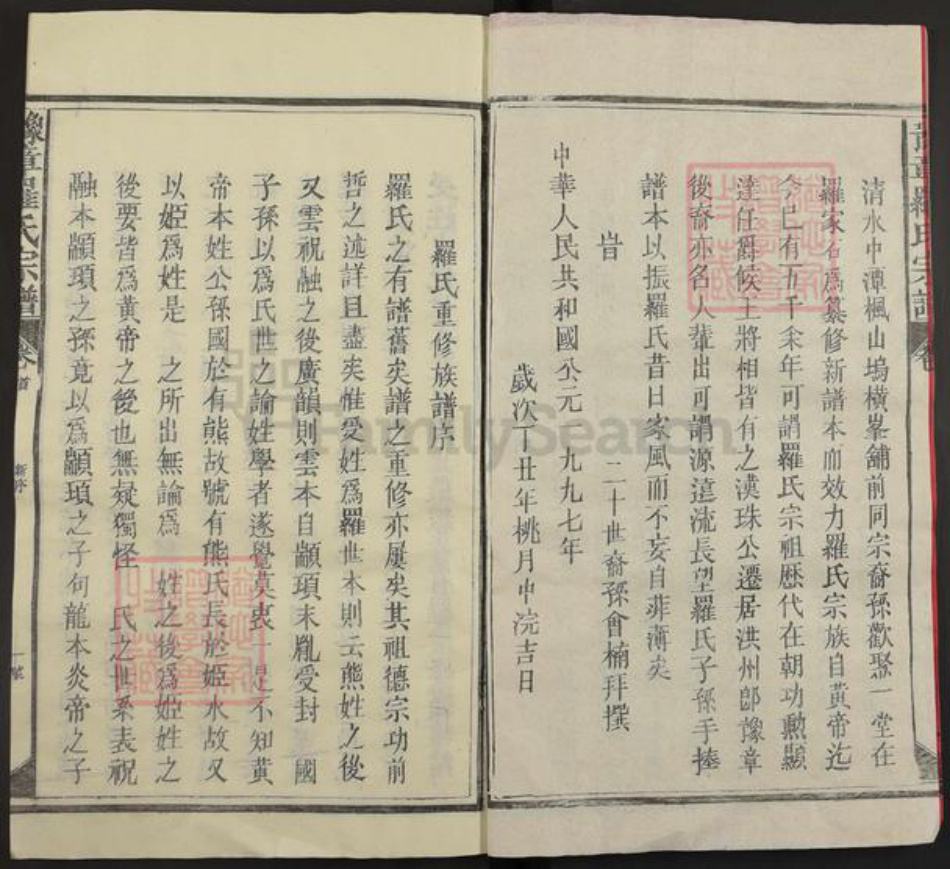 清水中潭楓山塢橫峯舖前同宗裔孫歡聚一堂在
羅家石為纂修新譜本而效力羅氏宗族自黃帝迄
今已有五千余年可謂羅氏宗祖歷代在朝功勲顯
達任爵候王將相皆有之漢珠公遷居洪州郎豫章
後裔亦名人輩出可謂源遠流長望羅氏子孫手捧
譜本以振羅氏昔日家風而不妄自菲薄矣
旹
二十世裔孫會楠拜撰
中華人民共和國公元一九九七年
歲次丁丑年桃月中浣吉日
羅氏重修族譜序
羅氏之有譜舊矣譜之重修亦屢矣其祖德宗功前
哲之述詳且盡矣惟受姓爲羅世本則云熊姓之後
又雲祝融之後廣韻則雲本自顓頊末胤受封 國
子孫以爲氏世之論姓學者遂覺莫衷一是不知黃
帝本姓公孫國於有熊故號有熊氏長於姬水故又
以姬爲姓是 之所出無論爲 姓之後爲姬姓之
後要皆爲黃帝之後也無疑獨怪 氏之世系表祝
融本顓頊之孫竟以爲顓頊之子句龍本炎帝之子
豫章羅氏宗譜
卷首
新序
豫章羅氏宗譜
卷
FamilySearch